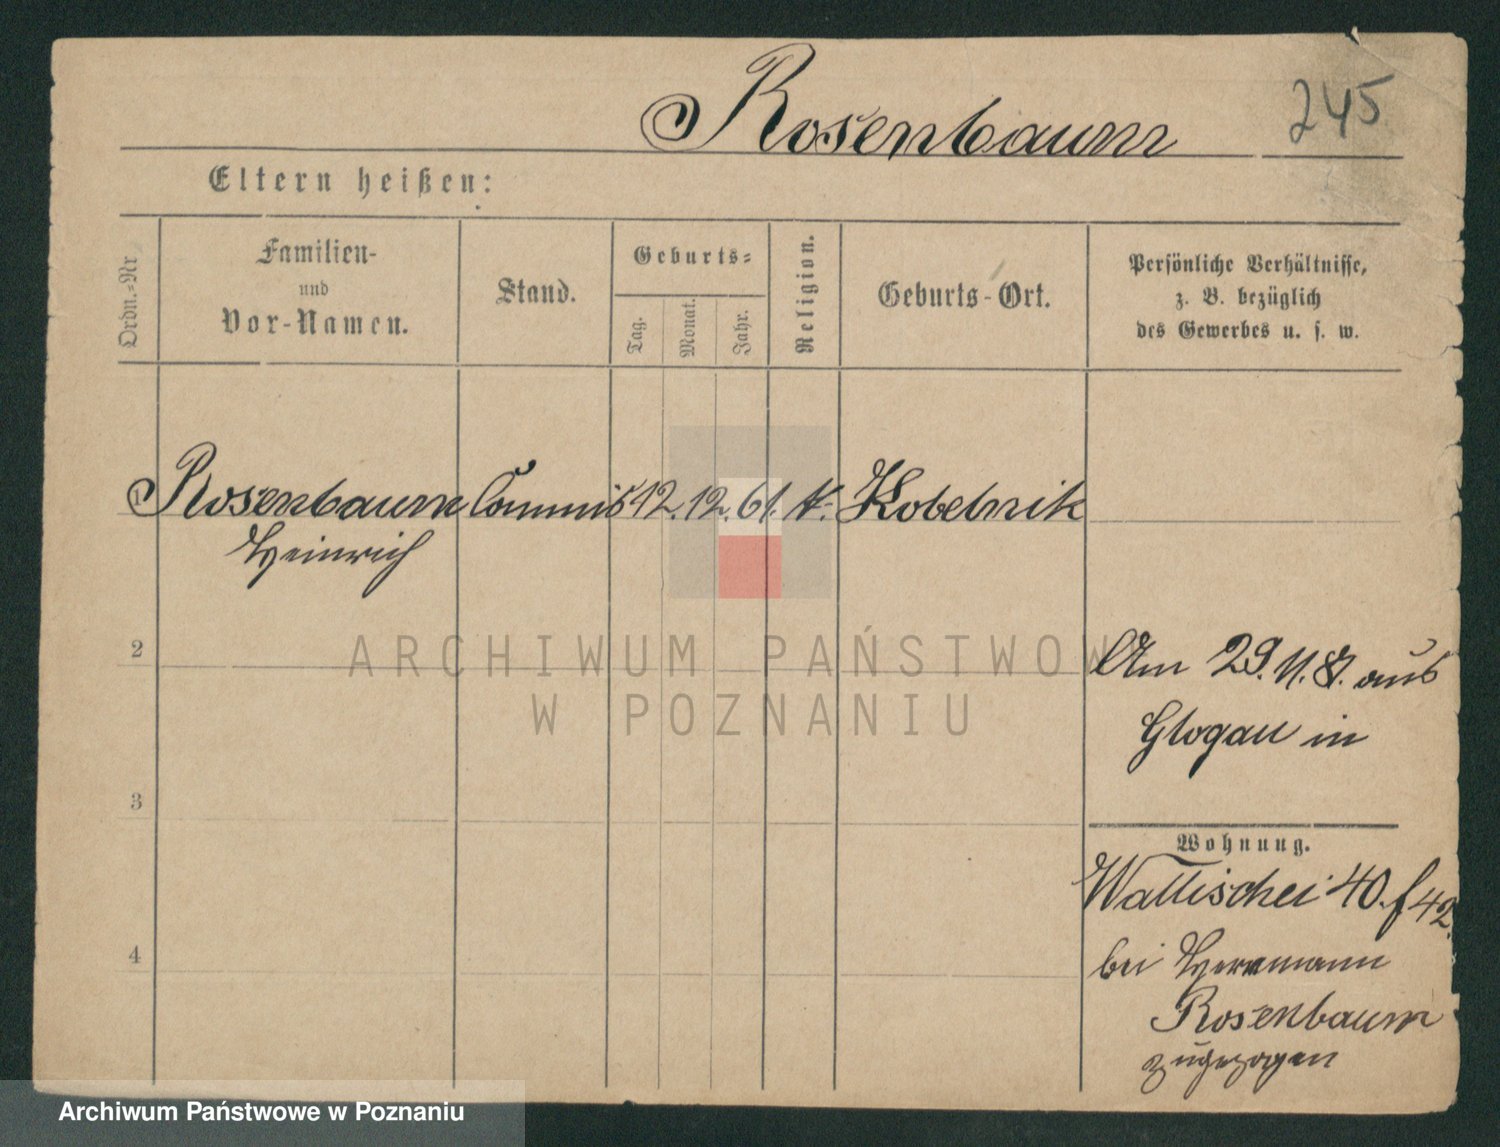 Rosenbaum
245
Eltern heißen:
Ordn.-Nr
Familien-
und
Vor-Namen.
Stand.
Geburts-
Tag.
Monat.
Jahr.
Religion.
Geburts-Ort.
Persönliche Verhältnisse,
z. B. bezüglich
des Gewerbes u. s. w.
1 Rosenbaum Commis 12. 12. 61. Kobelnik
Heinrich
2
3
4
Am 29. 11. aus
Glogau in
Wohnung.
Wallischei 40. 42.
bei Herrmann
Rosenbaum
zugezogen
ARCHIWUM PAŃSTWOW
W POZNANIU
Archiwum Państwowe w Poznaniu